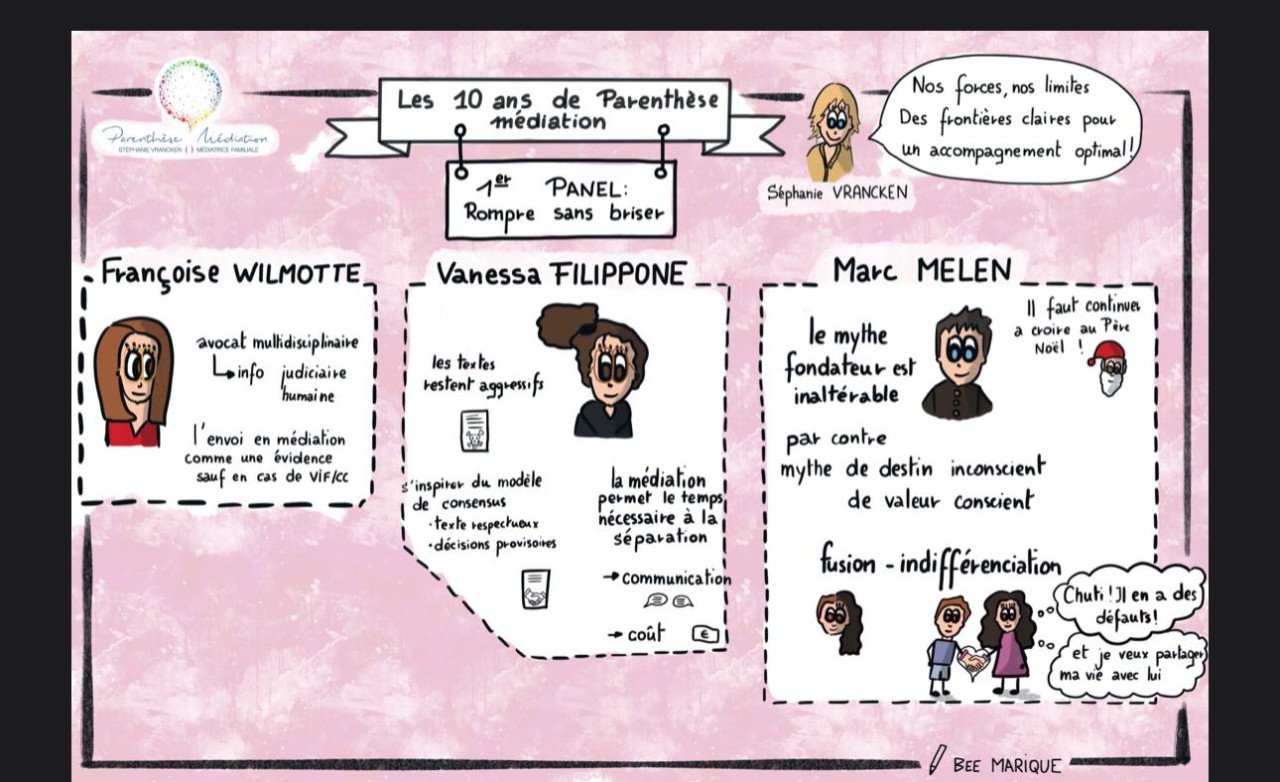 Parenthèse Médiation
STÉPHANIE VRANCKEN ( ) MÉDIATRICE FAMILIALE
Les 10 ans de Parenthèse
médiation
1er PANEL:
Rompre sans briser
Nos forces, nos limites
Des frontières claires pour
un accompagnement optimal!
Séphanie VRANCKEN
Françoise WILMOTTE
avocat multidisciplinaire
info judiciaire
humaine
l'envoi en médiation
comme une évidence
sauf en cas de ViF/CC
Vanessa FILIPPONE
les textes
restent aggressifs
s'inspirer du modèle
de consensus
· texte respectueux
· décisions provisoires
la médiation
permet le temps
nécessaire à la
séparation
→ communication
→ coût
€
Marc MELEN
le mythe
fondateur est
inaltérable
Il faut continuer
a croire au Père
Noël !
par contre
mythe de destin inconscient
de valeur conscient
fusion - indifférenciation
Chuti! Il en a des
défauts!
et je veux partager
ma vie avec lui
BEE MARIQUE